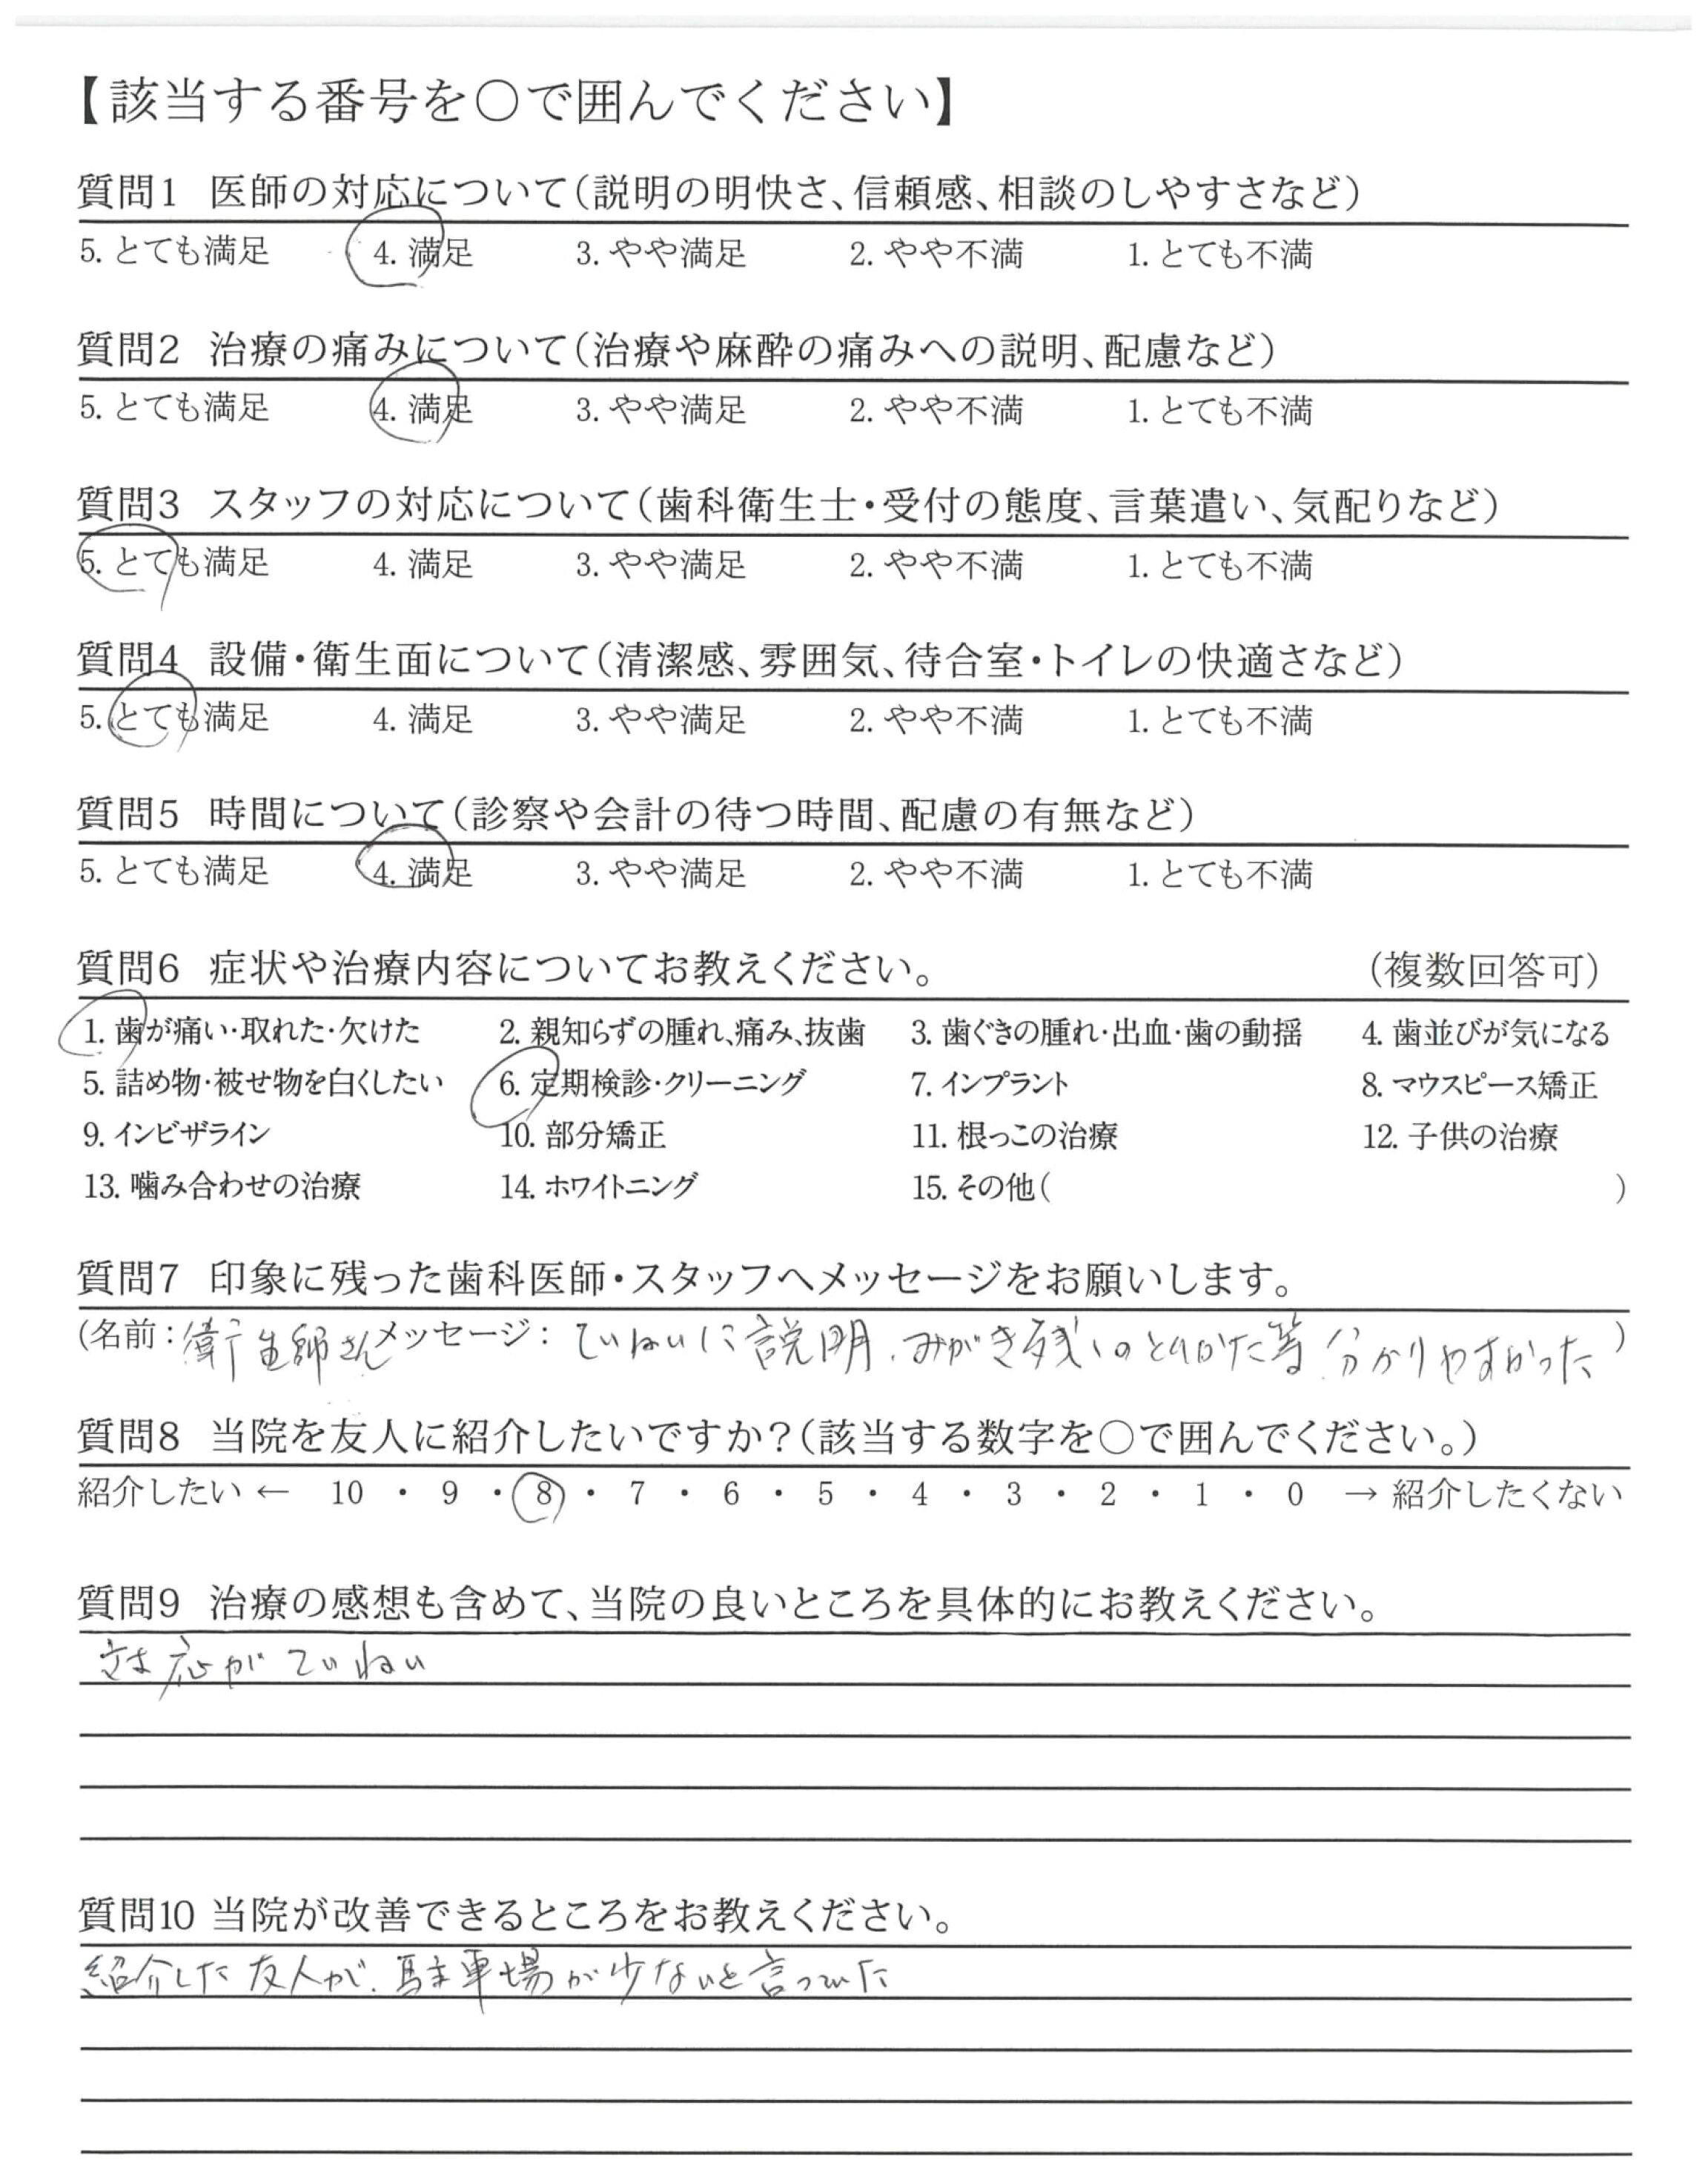 【該当する番号を〇で囲んでください】
質問1 医師の対応について(説明の明快さ、信頼感、相談のしやすさなど)
5. とても満足 4. 満足 3. やや満足 2. やや不満 1. とても不満
質問2 治療の痛みについて(治療や麻酔の痛みへの説明、配慮など)
5. とても満足 4. 満足 3. やや満足 2. やや不満 1. とても不満
質問3 スタッフの対応について(歯科衛生士・受付の態度、言葉遣い、気配りなど)
5. とても満足 4. 満足 3. やや満足 2. やや不満 1. とても不満
質問4 設備・衛生面について(清潔感、雰囲気、待合室・トイレの快適さなど)
5. とても満足 4. 満足 3. やや満足 2. やや不満 1. とても不満
質問5 時間について(診察や会計の待つ時間、配慮の有無など)
5. とても満足 4. 満足 3. やや満足 2. やや不満 1. とても不満
質問6 症状や治療内容についてお教えください。 (複数回答可)
1. 歯が痛い・取れた・欠けた 2. 親知らずの腫れ、痛み、抜歯 3. 歯ぐきの腫れ・出血・歯の動揺 4. 歯並びが気になる
5. 詰め物・被せ物を白くしたい 6. 定期検診・クリーニング 7. インプラント 8. マウスピース矯正
9. インビザライン 10. 部分矯正 11. 根っこの治療 12. 子供の治療
13. 噛み合わせの治療 14. ホワイトニング 15. その他( )
質問7 印象に残った歯科医師・スタッフへメッセージをお願いします。
(名前: 衛生師さん メッセージ: ていねいに説明、みがき残しのとりかた等 分かりやすかった )
質問8 当院を友人に紹介したいですか?(該当する数字を〇で囲んでください。)
紹介したい ← 10 ・ 9 ・ 8 ・ 7 ・ 6 ・ 5 ・ 4 ・ 3 ・ 2 ・ 1 ・ 0 → 紹介したくない
質問9 治療の感想も含めて、当院の良いところを具体的にお教えください。
対応がていねい
質問10 当院が改善できるところをお教えください。
紹介した友人が、駐車場が少ないと言っていた